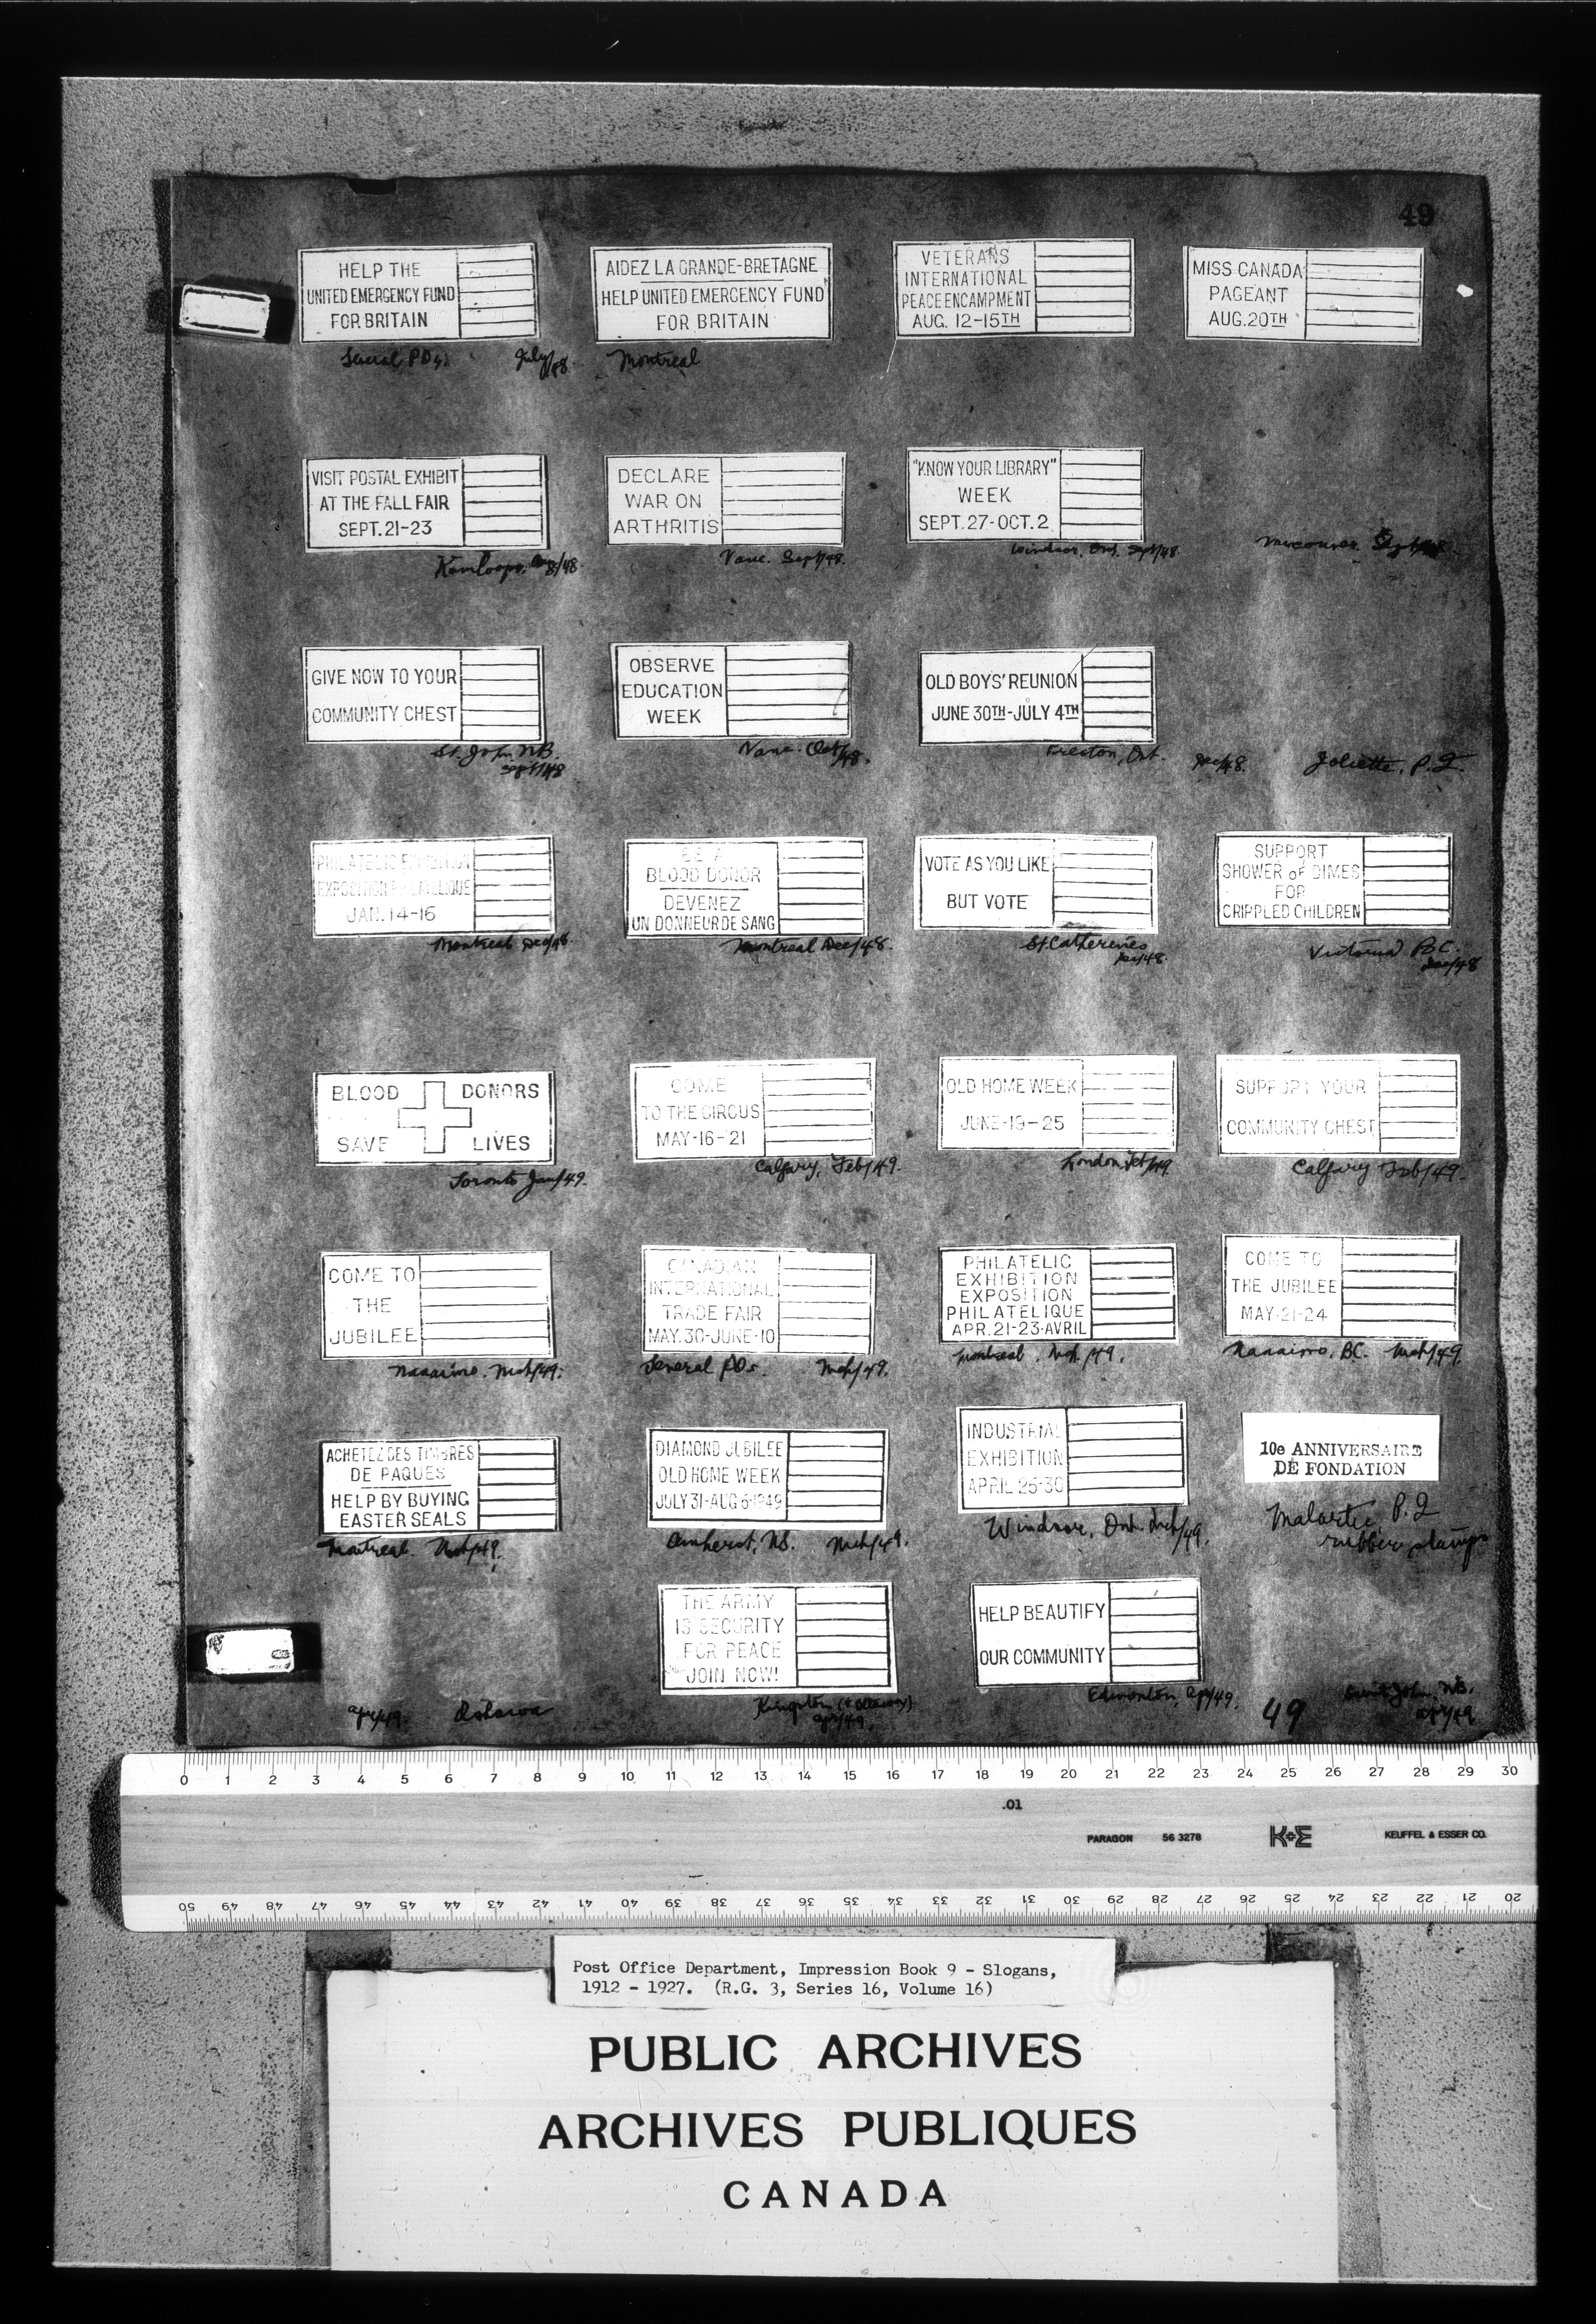 49
HELP THE
UNITED EMERGENCY FUND
FOR BRITAIN
Several POs. July/48
AIDEZ LA GRANDE-BRETAGNE
HELP UNITED EMERGENCY FUND
FOR BRITAIN
Montreal
VETERANS
INTERNATIONAL
PEACE ENCAMPMENT
AUG. 12-15TH
MISS CANADA
PAGEANT
AUG. 20TH
VISIT POSTAL EXHIBIT
AT THE FALL FAIR
SEPT. 21-23
Kamloops. /48
DECLARE
WAR ON
ARTHRITIS
Vanc. Sept/48.
"KNOW YOUR LIBRARY"
WEEK
SEPT. 27-OCT. 2
Windsor, Ont. Sept/48
Vancouver. Sept/48
GIVE NOW TO YOUR
COMMUNITY CHEST
St. John NB.
Sept/48
OBSERVE
EDUCATION
WEEK
Vanc. Oct/48.
OLD BOYS' REUNION
JUNE 30TH-JULY 4TH
Preston, Ont.
Dec/48. Joliette, P.Q.
PHILATELIC EXHIBITION
EXPOSITION PHILATELIQUE
JAN. 14-16
Montreal Dec/48.
BE A
BLOOD DONOR
DEVENEZ
UN DONNEUR DE SANG
Montreal Dec/48.
VOTE AS YOU LIKE
BUT VOTE
St. Catherines
Dec/48
SUPPORT
SHOWER OF DIMES
FOR
CRIPPLED CHILDREN
Victoria B.C.
Dec/48
BLOOD DONORS
SAVE LIVES
Toronto Jan/49.
COME
TO THE CIRCUS
MAY-16-21
Calgary, Feb/49.
OLD HOME WEEK
JUNE-19-25
London Feb/49
SUPPORT YOUR
COMMUNITY CHEST
Calgary Feb/49.
COME TO
THE
JUBILEE
Nanaimo. Mch/49.
CANADIAN
INTERNATIONAL
TRADE FAIR
MAY. 30-JUNE-10
Several POs. Mch/49.
PHILATELIC
EXHIBITION
EXPOSITION
PHILATELIQUE
APR. 21-23-AVRIL
Montreal. Mch/49.
COME TO
THE JUBILEE
MAY-21-24
Nanaimo, BC. Mch/49.
ACHETEZ DES TIMBRES
DE PAQUES
HELP BY BUYING
EASTER SEALS
Montreal. Mch/49.
DIAMOND JUBILEE
OLD HOME WEEK
JULY 31-AUG 6-1949
Amherst, NS. Mch/49.
INDUSTRIAL
EXHIBITION
APRIL 25-30
Windsor, Ont. Mch/49.
10e ANNIVERSAIRE
DE FONDATION
Malartic, P.Q
rubber stamps
Apr/49. Oshawa
THE ARMY
IS SECURITY
FOR PEACE
JOIN NOW!
Kingston
Apr/49.
HELP BEAUTIFY
OUR COMMUNITY
Edmonton, Apr/49.
49
Saint John. NB.
Apr/49
0 1 2 3 4 5 6 7 8 9 10 11 12 13 14 15 16 17 18 19 20 21 22 23 24 25 26 27 28 29 30
.01
PARAGON 56 3278 K+E KEUFFEL & ESSER CO.
50 49 48 47 46 45 44 43 42 41 40 39 38 37 36 35 34 33 32 31 30 29 28 27 26 25 24 23 22 21 20
Post Office Department, Impression Book 9 - Slogans,
1912 - 1927. (R.G. 3, Series 16, Volume 16)
PUBLIC ARCHIVES
ARCHIVES PUBLIQUES
CANADA